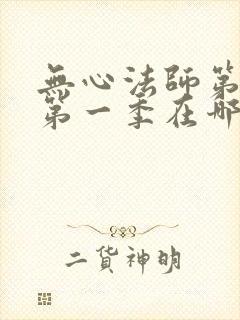 無心法師第
第一季在哪
二货神明